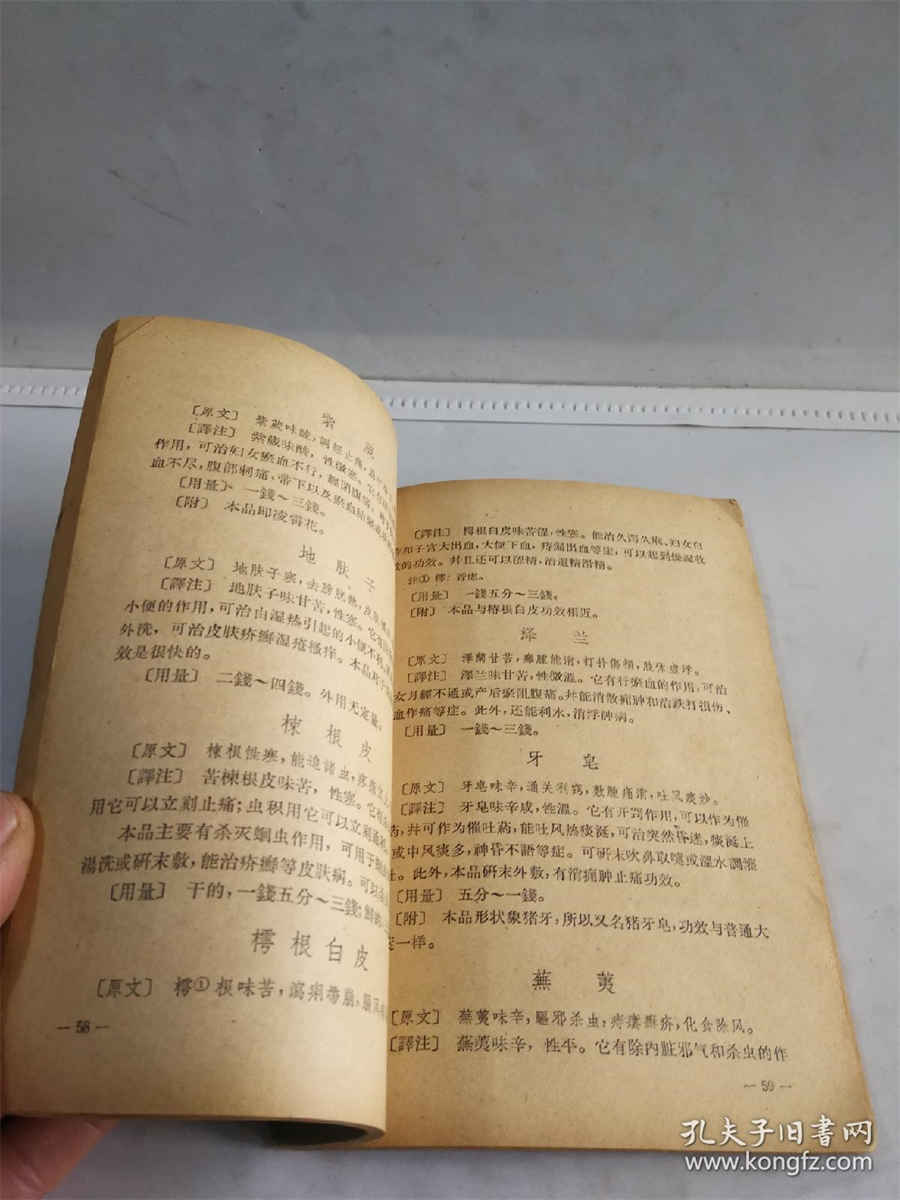 紫葳
〔原文〕 紫葳味酸，調經止痛，
〔譯注〕 紫葳味酸，性微寒。它有
作用，可治妇女瘀血不行，經閉腹痛，
血不尽，腹部刺痛、带下以及瘀血結
〔用量〕 一錢～三錢。
〔附〕 本品即凌霄花。
地肤子
〔原文〕 地肤子寒，去膀胱熱，皮肤
〔譯注〕 地肤子味甘苦，性寒。它有
小便的作用，可治由湿热引起的小便不利。
外洗，可治皮肤疥癬湿疮搔痒。本品
效是很快的。
〔用量〕 二錢～四錢。外用无定量。
楝根皮
〔原文〕 楝根性寒，能追諸虫，疼痛
〔譯注〕 苦楝根皮味苦，性寒。它
用它可以立刻止痛；虫积用它可以立刻通
本品主要有杀灭蛔虫作用，可用于
湯洗或研末敷，能治疥癬等皮肤病。可以
〔用量〕 干的，一錢五分～三錢；鮮的
樗根白皮
〔原文〕 樗①根味苦，瀉痢带崩，
— 58 —
〔譯注〕 樗根白皮味苦涩，性寒。能治久瀉久痢、妇女白
带和子宫大出血，大便下血，痔漏出血等症，可以起到燥湿收
的功效。并且还可以涩精，治遺精滑精。
注① 樗：
〔用量〕 一錢五分～三錢。
〔附〕 本品与椿根白皮功效相近。
泽兰
〔原文〕 澤蘭甘苦，癰腫能消，打扑傷損，肢体虚浮。
〔譯注〕 澤兰味甘苦，性微溫。它有行瘀血的作用，可治
女月經不通或产后瘀阻腹痛。并能消散癰肿和治跌打損伤、
血作痛等症。此外，还能利水，消浮肿病。
〔用量〕 一錢～三錢。
牙皂
〔原文〕 牙皂味辛，通关利窍，敷腫痛消，吐风痰妙。
〔譯注〕 牙皂味辛咸，性溫。它有开窍作用，可以作为催
药，并可作为催吐药，能吐风热痰涎，可治突然昏迷，痰涎上
或中风痰多，神昏不語等症。可研末吹鼻取嚏或溫水調灌
吐。此外，本品研末外敷，有消癰肿止痛功效。
〔用量〕 五分～一錢。
〔附〕 本品形状象猪牙，所以又名猪牙皂，功效与普通大
一样。
蕪荑
〔原文〕 蕪荑味辛，驅邪杀虫，痔瘻癬疥，化食除风。
〔譯注〕 蕪荑味辛，性平。它有除内脏邪气和杀虫的作
— 59 —
孔夫子旧書网
www.kongfz.com